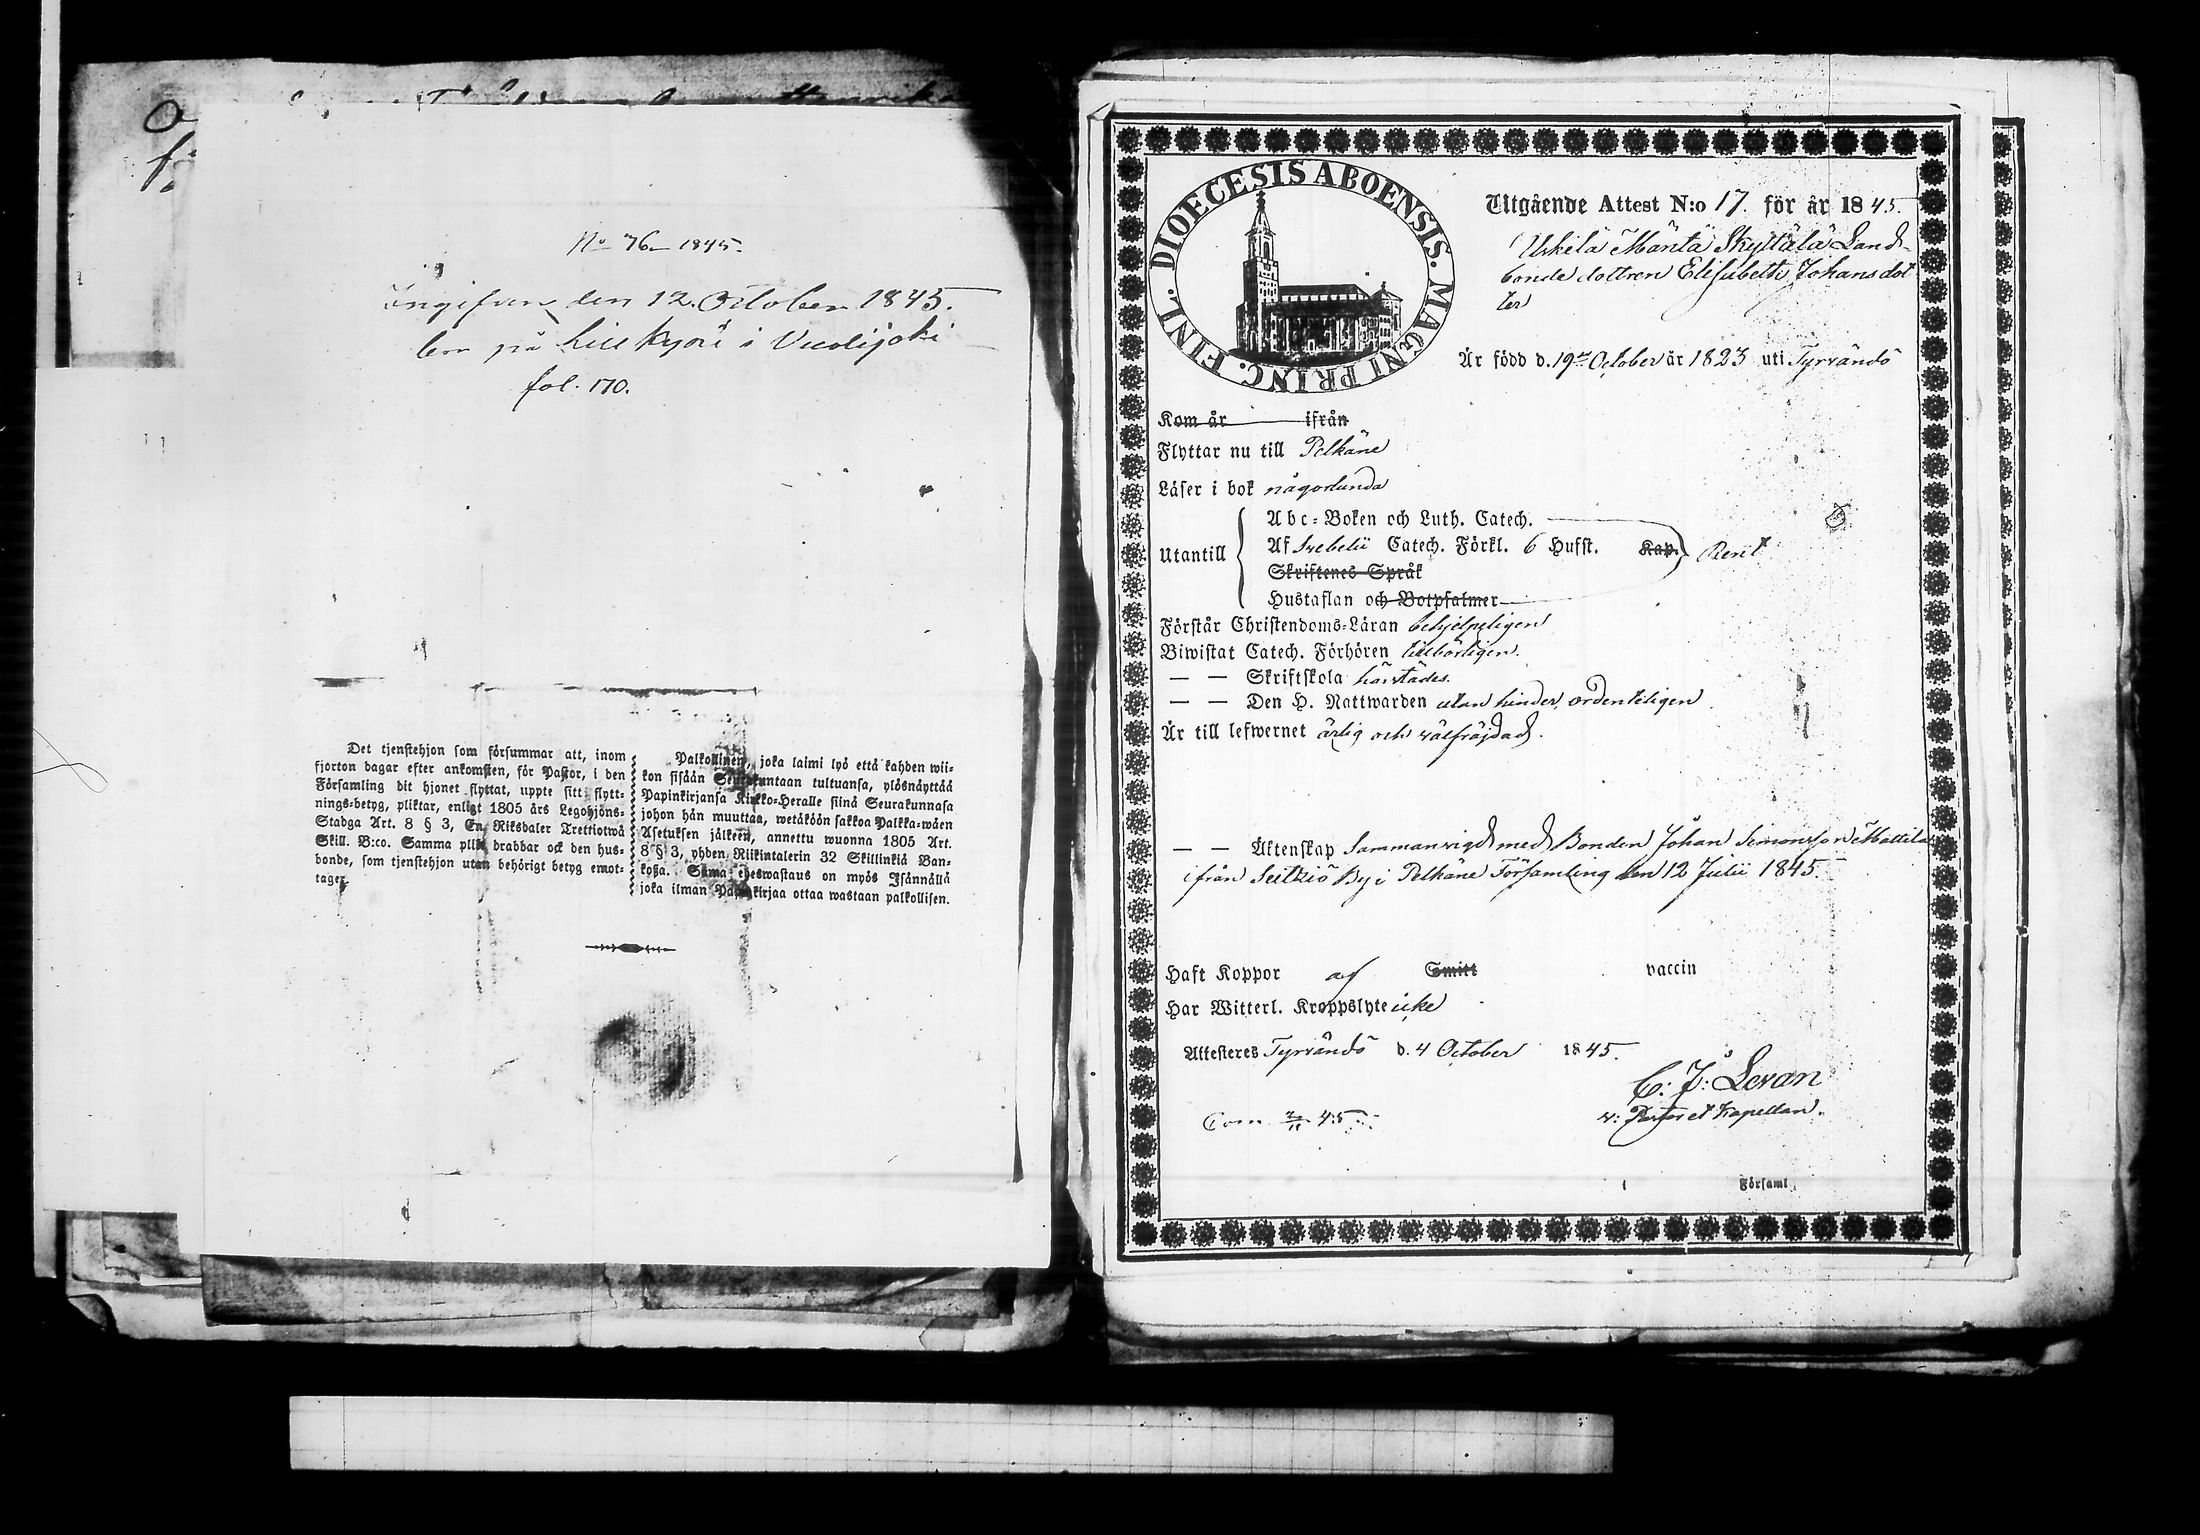 No 76 1845.
Ingifven den 12. October 1845.
bor på Lill Kyrö i Vuolijoki
fol. 170.
Det tjenstehjon som försummar att, inom
fjorton dagar efter ankomsten, för Pastor, i den
Församling dit hjonet flyttat, uppte sitt flytt-
nings-betyg, pliktar, enligt 1805 års Legohjons-
Stadga Art. 8 § 3, En Riksdaler Trettiotwå
Skill. B:co. Samma plikt drabbar ock den hus-
bonde, som tjenstehjon utan behörigt betyg emot-
tager.
Palkollinen, joka laimi lyö että kahden wii-
kon sisään Seurakuntaan tultuansa, ylösnäyttää
Papinkirjansa Kirkko-Heralle siinä Seurakunnasa
johon hän muuttaa, wetäköön sakkoa Palkka-wäen
Asetuksen jälkeen, annettu wuonna 1805 Art.
8 § 3, yhden Riikintalerin 32 Skillinkiä Ban-
kosa. Sama edeswastaus on myös Isännällä
joka ilman Papinkirjaa ottaa wastaan palkollisen.
DIOECESIS ABOENSIS. MAGNI PRINC. FINL.
Utgående Attest N:o 17. för år 1845.
Uskela Mäntä Skyttälä Land-
bonde dottren Elisabeth Johansdot
ter
Är född d. 19de October år 1823 uti Tyrvändö
Kom år ifrån
Flyttar nu till Pelkäne
Läser i bok någorlunda
Utantill
Abc-Boken och Luth. Catech.
Af Svebelii Catech. Förkl. 6 Hufst. Kap.
Rent
Skriftenes Språk
Hustaflan och Botpsalmer
Förstår Christendoms-Läran behjelpeligen
Biwistat Catech. Förhören tillbörligen.
— — Skriftskola härstädes.
— — Den H. Nattwarden utan hinder, ordenteligen
Är till lefwernet ärlig och välfräjdad.
— — Äktenskap Sammanvigd med Bonden Johan Simonsson Mattila
ifrån Seitziö By i Pelkäne Församling den 12 Julii 1845.
Haft Koppor af Smitt vaccin
Har Witterl. Kroppslyte icke
Attesteres Tyrvändö d. 4 October 1845.
C: J: Levan
v: Pastor et Kapellan.
Com 2/11 45
Församl.